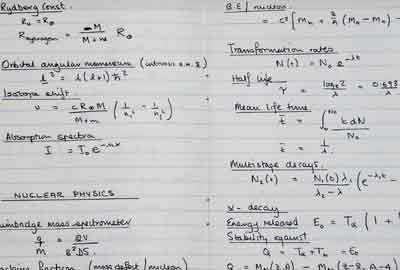 Rydberg Const.
R₀ = R∞
R_hydrogen = M / (M + m) R∞
Orbital angular momentum
l² = l(l+1) ħ²
Isotope shift.
ν = cR∞M / (M+m) (1/n₁² − 1/n₂²)
Absorption spectra
I = I₀ e^(-nαx)
NUCLEAR PHYSICS
Bainbridge mass spectrometer
q/M = 2V / B²
(mass defect / nucleon)
B.E / nucleon
= c² [ Mn + Z/A (MH − Mn) −
Transformation rates
N(t) = N₀ e^(-λt)
Half life
τ = loge2 / λ = 0.693
Mean life time
t̄ = ∫₀^N₀ t dN / N₀
t̄ = 1/λ
Multistage decays.
N₂(t) = N₁(0) λ₁ / (λ₂ − λ) (e^(-λ₁t −
α - decay
Energy released E₀ = Tα ( 1 +
Stability against
Q = Tα + Th = E₀
Q = M (Z, A) − M (Z-2, A-4)